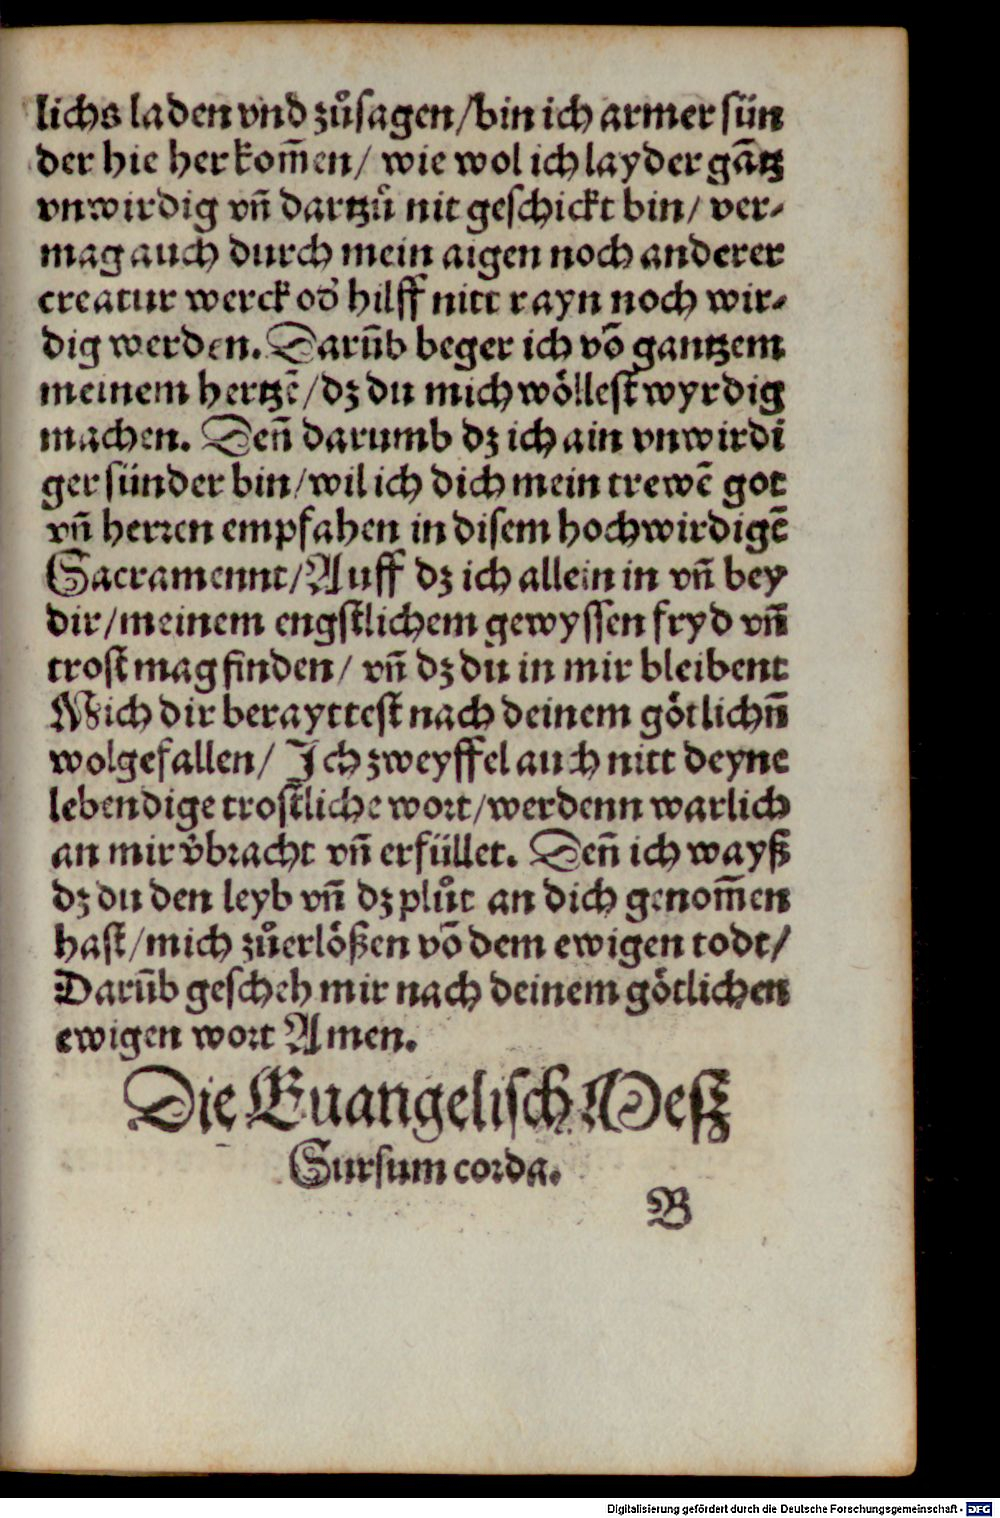 lichs laden vnd zůsagen/bin ich armer sün
der hie her kom̄en/ wie wol ich layder gātz
vnwirdig vn̄ dartzů nit geschickt bin/ ver-
mag auch durch mein aigen noch anderer
creatur werck od̕ hilff nitt rayn noch wir-
dig werden. Darūb beger ich vō gantzem
meinem hertzē/dz du mich wöllest wyrdig
machen. Den̄ darumb dz ich ain vnwirdi
ger sünder bin/wil ich dich mein trewē got
vn̄ herren empfahen in disem hochwirdigē
Sacramennt/Auff dz ich allein in vn̄ bey
dir/meinem engstlichem gewyssen fryd vn̄
trost mag finden/ vn̄ dz du in mir bleibent
Mich dir berayttest nach deinem götlichn̄
wolgefallen/ Ich zweyffel auch nitt deyne
lebendige trostliche wort/werdenn warlich
an mir v̕bracht vn̄ erfüllet. Den̄ ich wayß
dz du den leyb vn̄ dz plůt an dich genom̄en
hast/mich zůerlößen vō dem ewigen todt/
Darūb gescheh mir nach deinem götlichen
ewigen wort Amen.
Die Euangelisch Meß
Sursum corda.
B
Digitalisierung gefördert durch die Deutsche Forschungsgemeinschaft - DFG